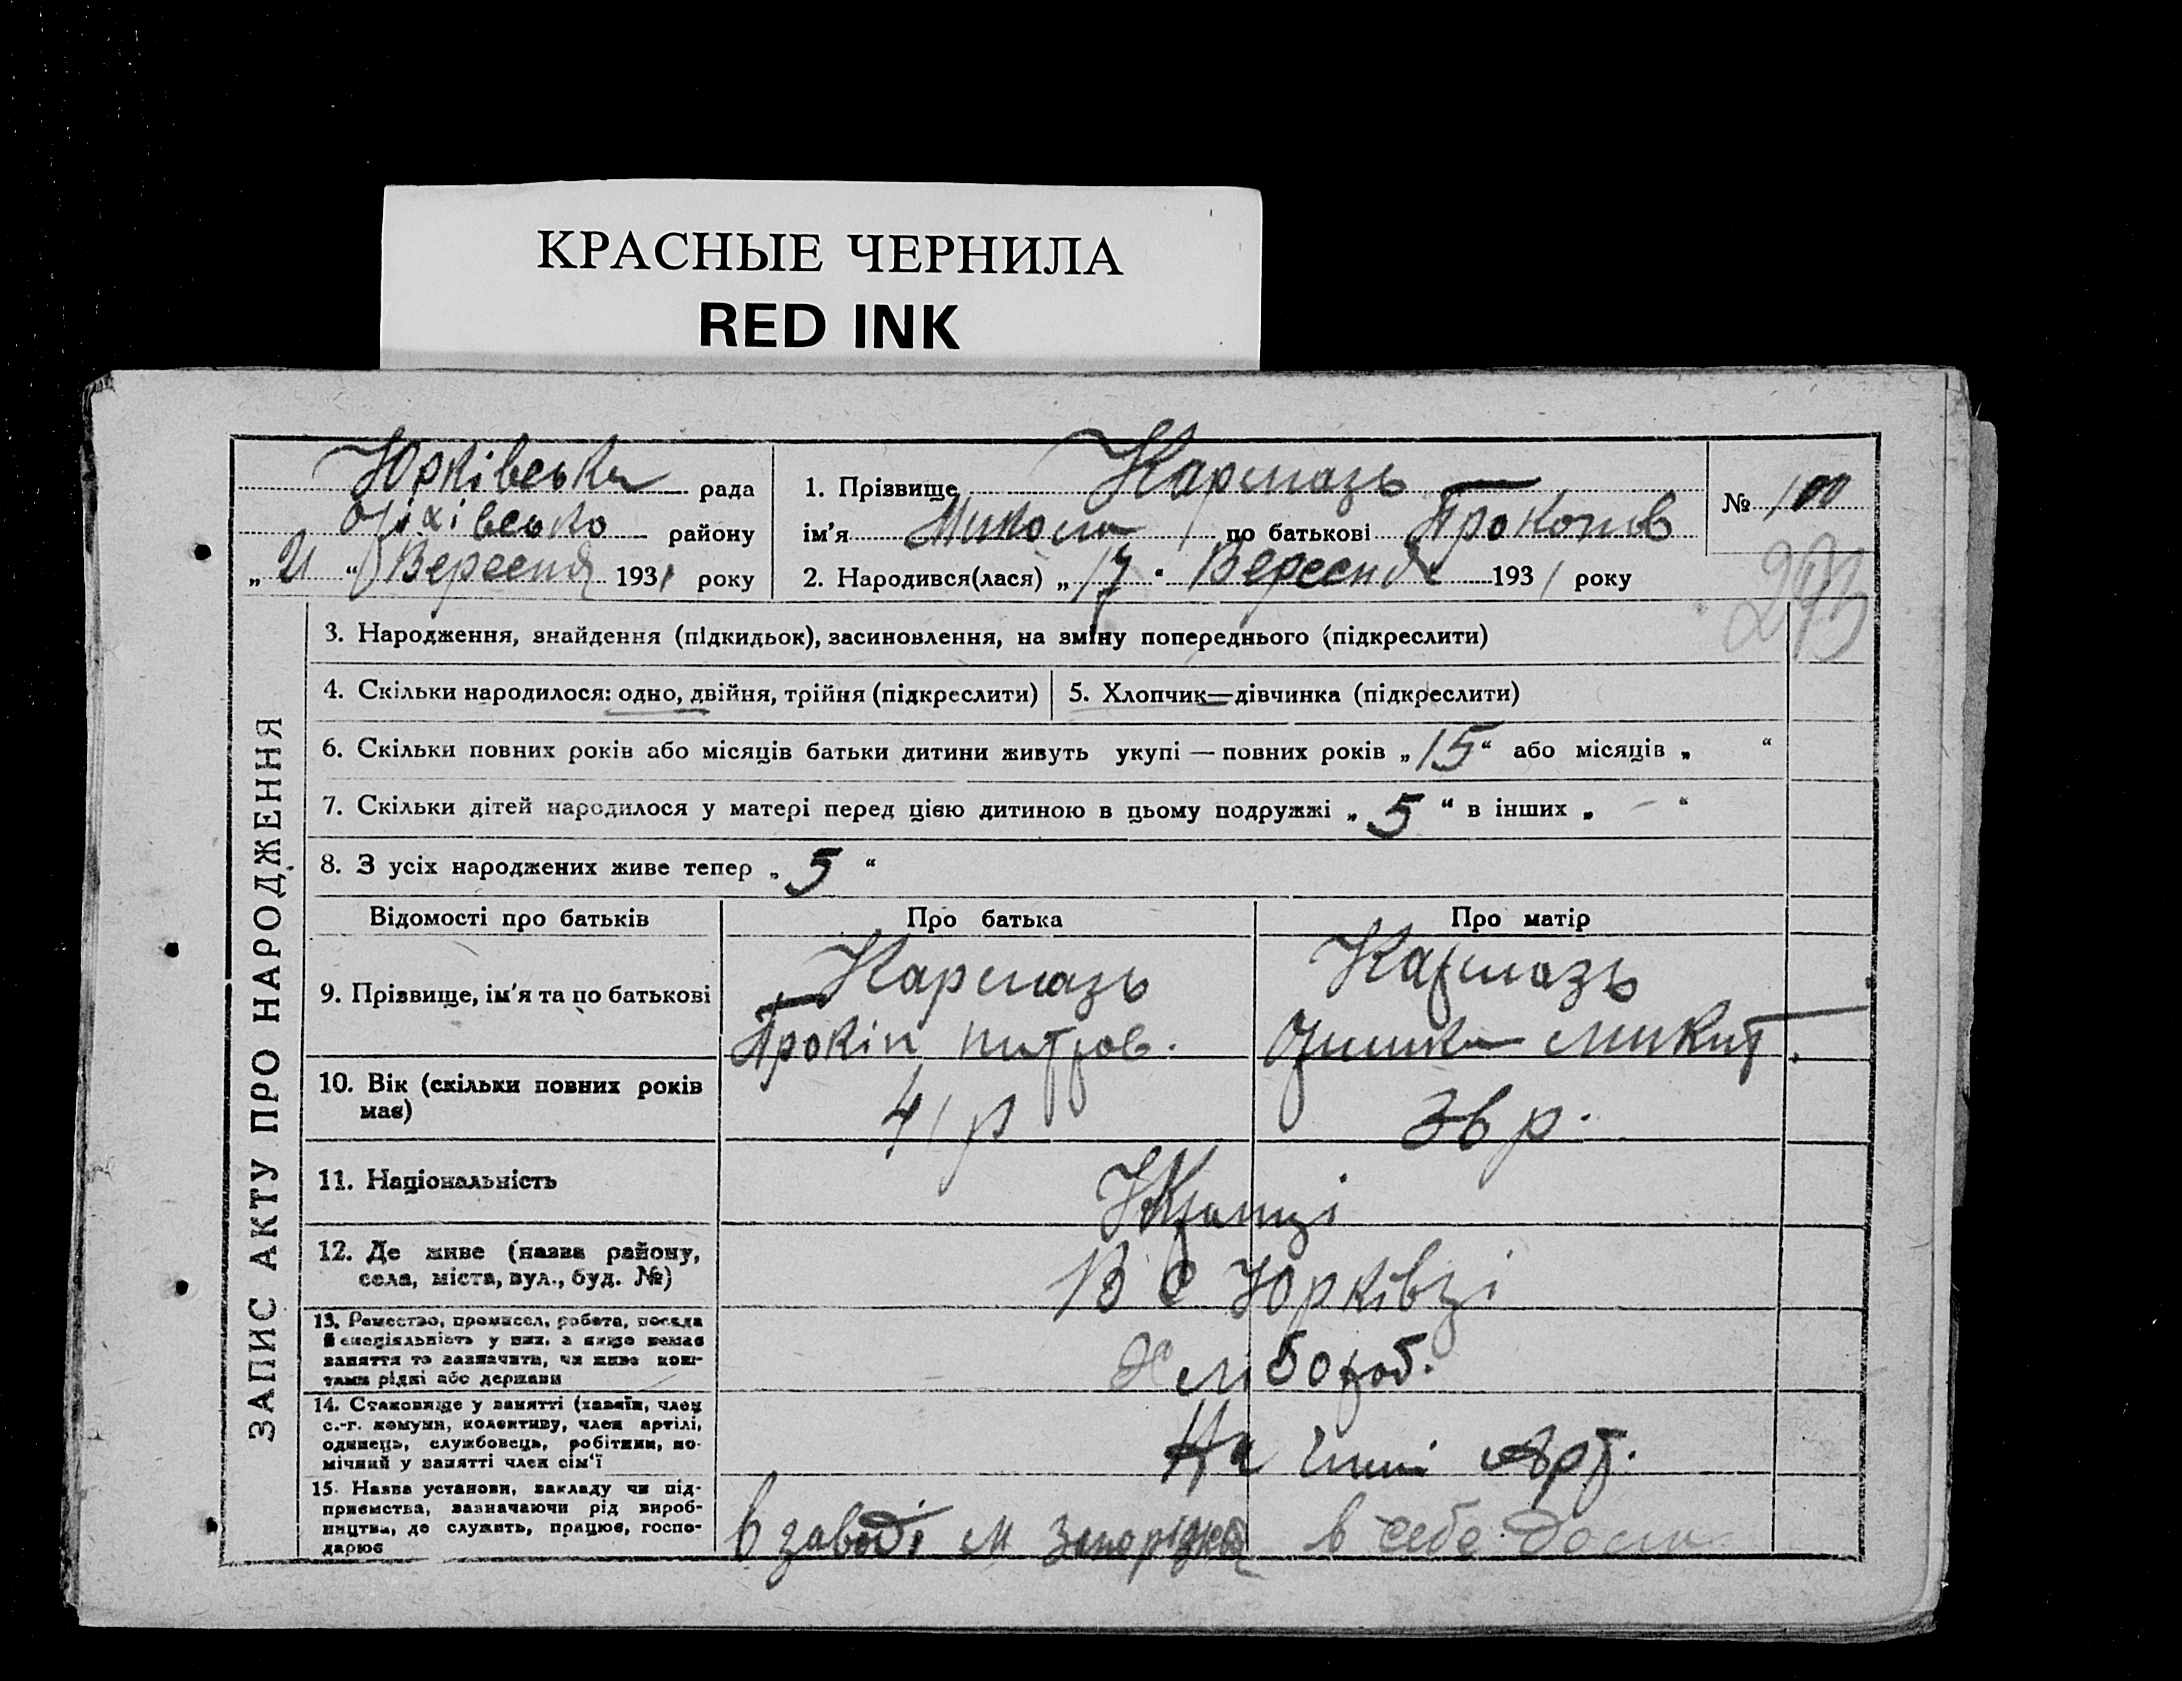 КРАСНЫЕ ЧЕРНИЛА
RED INK
Юрківська рада
Оріхівсько району
„ 21 “ Вересня 1931 року
1. Прізвище Кармазь
ім'я Микола по батькові Прокопов
2. Народився(лася) „ 17 “ Вересня 1931 року
№ 100
293
ЗАПИС АКТУ ПРО НАРОДЖЕННЯ
3. Народження, знайдення (підкидьок), засиновлення, на зміну попереднього (підкреслити)
4. Скільки народилося: одно, двійня, трійня (підкреслити)
5. Хлопчик—дівчинка (підкреслити)
6. Скільки повних років або місяців батьки дитини живуть укупі — повних років „ 15 “ або місяців „ “
7. Скільки дітей народилося у матері перед цією дитиною в цьому подружжі „ 5 “ в інших „ – “
8. З усіх народжених живе тепер „ 5 “
Відомості про батьків
Про батька
Про матір
9. Прізвище, ім'я та по батькові
Кармазь
Прокіп питров.
Кармазь
микит.
10. Вік (скільки повних років
має)
41 р
36 р.
11. Національність
Украінці
12. Де живе (назва району,
села, міста, вул., буд. №)
В с Юрківці
13. Ремество, промисел, робота, посада
й спеціяльність у них, а якщо немає
заняття то зазначити, чи живе кош-
тами рідні або держави
Хлібороб.
14. Становище у занятті (хазяїн, член
с.-г. комуни, колективу, член артілі,
одинець, службовець, робітник, по-
мічний у занятті член сім'ї
Чл Арт.
15. Назва установи, закладу чи під-
приємства, зазначаючи рід вироб-
ництва, де служить, працює, госпо-
дарює
в заводі м Запоріжжя
в себе дома